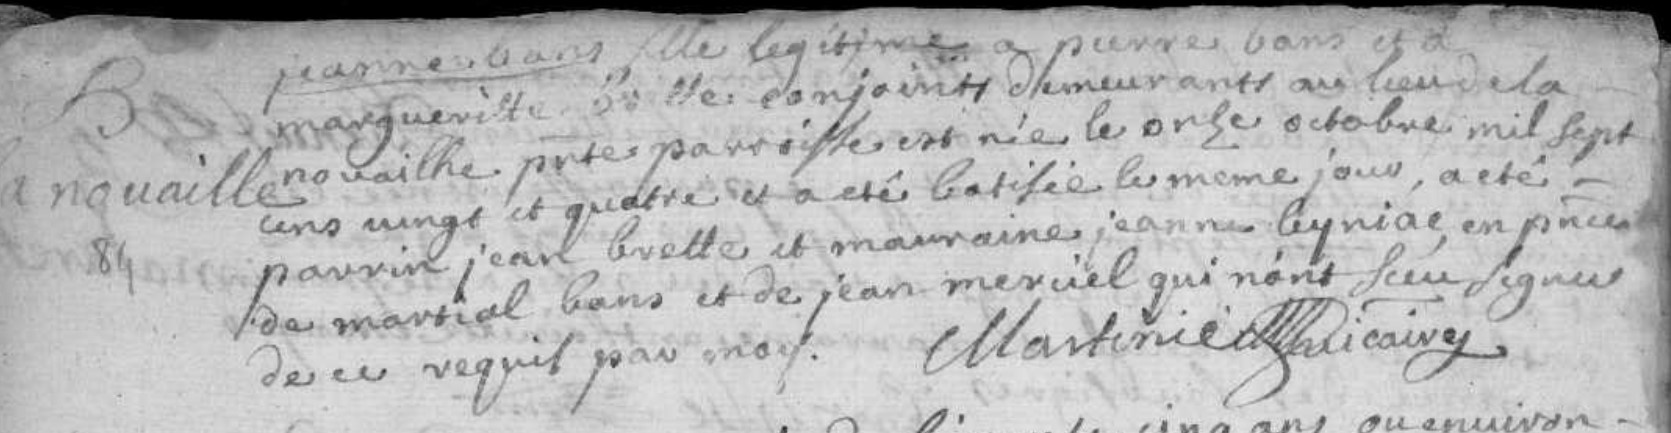 jeanne bans fille legitime a pierre bans et a
B
margueritte brette conjoints demeurants au lieu de la
la nouaille
novailhe pnte parroisse est née le onze octobre mil sept
cens vingt et quatre et a eté batisée le meme jour, a eté
84
parrin jean brette et mauraine jeanne leyniac en pnce
de martial bans et de jean merciel qui nónt sceu signer
de ce requis par moy. Martinie vicaire
cinq ans ou environ